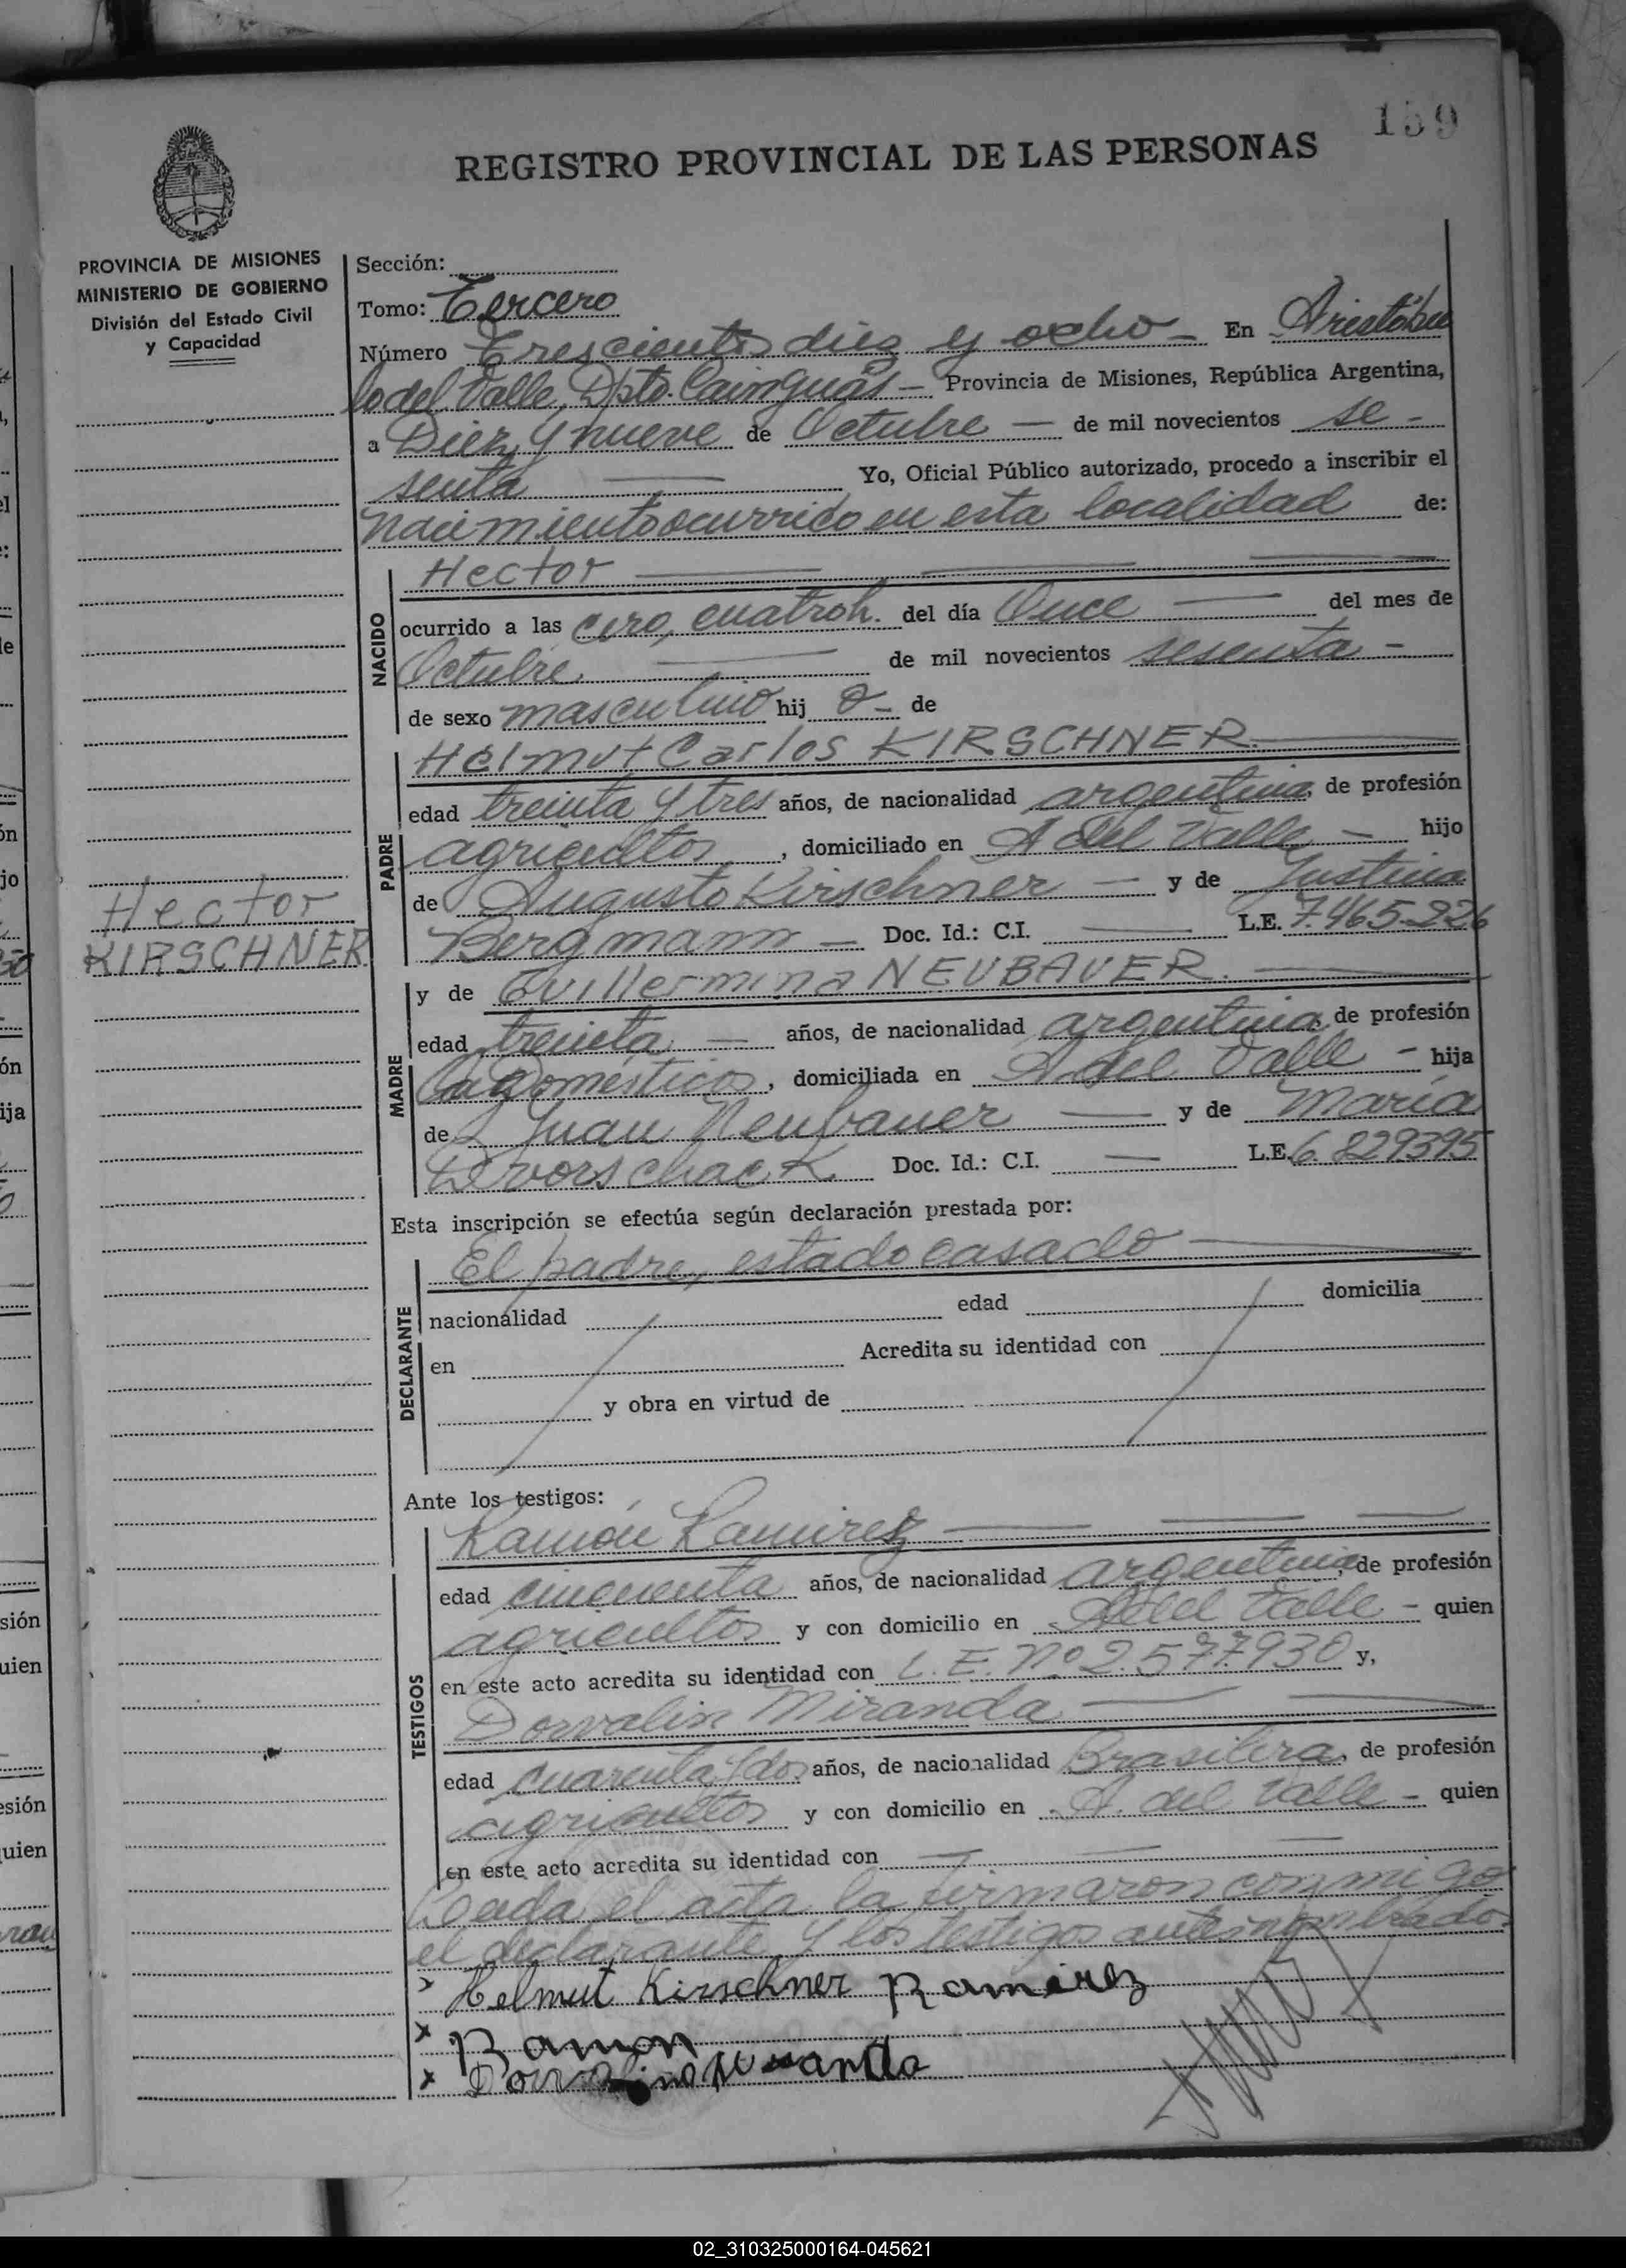 159
REGISTRO PROVINCIAL DE LAS PERSONAS
PROVINCIA DE MISIONES
MINISTERIO DE GOBIERNO
División del Estado Civil
y Capacidad
Hector
KIRSCHNER
Sección:
Tomo: Tercero
Número Trescientos diez y ocho - En Aristóbu
lo del Valle, Dpto. Cainguás - Provincia de Misiones, República Argentina,
a Diez y nueve de Octubre - de mil novecientos se -
senta Yo, Oficial Público autorizado, procedo a inscribir el
Nacimiento ocurrido en esta localidad de:
NACIDO
Hector
ocurrido a las cero, cuatro h. del día Once del mes de
Octubre de mil novecientos sesenta -
de sexo masculino hij o - de
PADRE
Helmut Carlos KIRSCHNER
edad treinta y tres años, de nacionalidad argentina, de profesión
agricultor, domiciliado en A del Valle - hijo
de Augusto Kirschner - y de Justina
Bergmann - Doc. Id.: C.I. L.E. 7.465.226
MADRE
y de Guillermina NEUBAUER.
edad treinta años, de nacionalidad argentina, de profesión
domesticos, domiciliada en A. del Valle - hija
de Juan Neubauer y de María
Dvorschack Doc. Id.: C.I. L.E. 6.829395
Esta inscripción se efectúa según declaración prestada por:
DECLARANTE
El padre, estado casado
nacionalidad edad domicilia
en Acredita su identidad con
y obra en virtud de
Ante los testigos:
TESTIGOS
Ramón Ramirez
edad cincuenta años, de nacionalidad argentina, de profesión
agricultor y con domicilio en A del Valle - quien
en este acto acredita su identidad con L.E. Nº 2.577.930 y,
Dorvalin Miranda
edad cuarenta y dos años, de nacionalidad Brasilera, de profesión
agricultor y con domicilio en A. del Valle - quien
en este acto acredita su identidad con
Leida el acta la firmaron conmigo
el declarante y los testigos antes nombrados
x Helmut Kirschner Ramirez
x Ramon
x Miranda
02_310325000164-045621